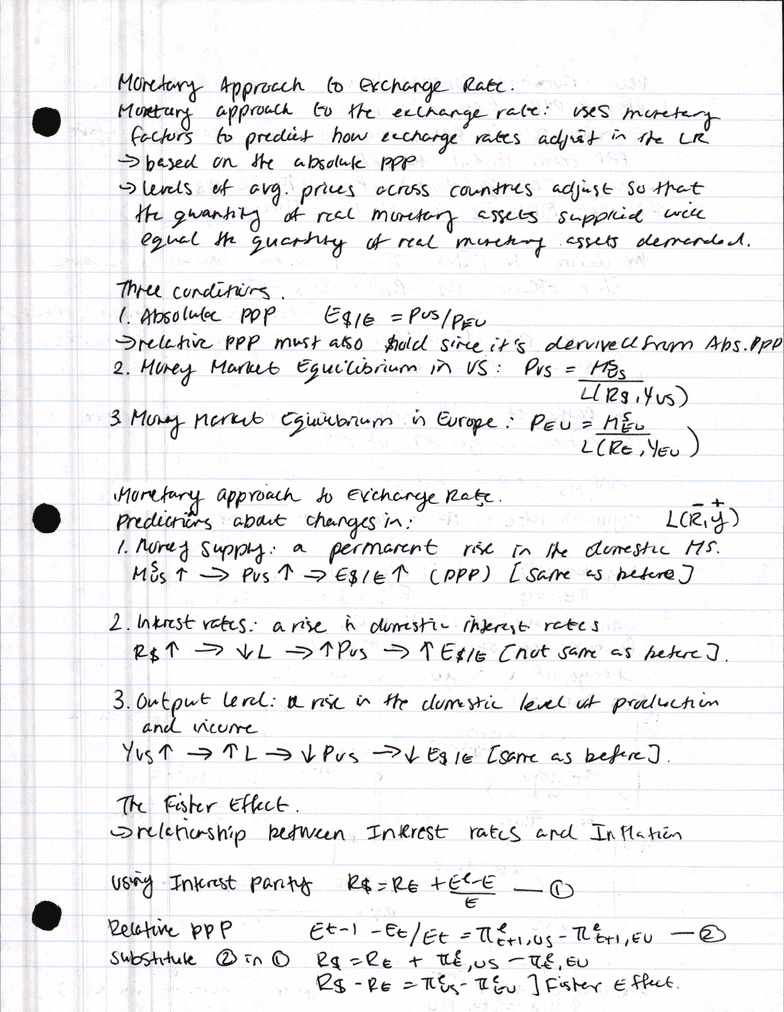 Monetary Approach to Exchange Rate.
Monetary approach to the exchange rate: uses monetary
factors to predict how exchange rates adjust in the LR
→ based on the absolute PPP
→ levels of avg. prices across countries adjust so that
the quantity of real monetary assets supplied will
equal the quantity of real monetary assets demanded.
Three conditions.
1. Absolute PPP E$/€ = PUS/PEU
→ relative PPP must also hold since it's derived from Abs. PPP
2. Money Market Equilibrium in US: PUS = MSUS / L(R$, YUS)
3. Money Market Equilibrium in Europe: PEU = MSEU / L(R€, YEU)
Monetary approach to Exchange Rate.
Predictions about changes in: L(R̄, Y⁺)
1. Money Supply: a permanent rise in the domestic MS.
MSUS ↑ → PUS ↑ → E$/€ ↑ (PPP) [same as before]
2. Interest rates: a rise in domestic interest rates
R$ ↑ → ↓ L → ↑ PUS → ↑ E$/€ [not same as before].
3. Output level: a rise in the domestic level of production
and income
YUS ↑ → ↑ L → ↓ PUS → ↓ E$/€ [same as before].
The Fisher Effect.
→ relationship between Interest rates and Inflation
Using Interest parity R$ = R€ + Eᵉ-E / E — ①
Relative PPP Et-1 - Et/Et = πᵉt+1,US - πᵉt+1,EU — ②
Substitute ② in ① R$ = R€ + πᵉ,US - πᵉ,EU
R$ - R€ = πᵉUS - πᵉEU ] Fisher Effect.